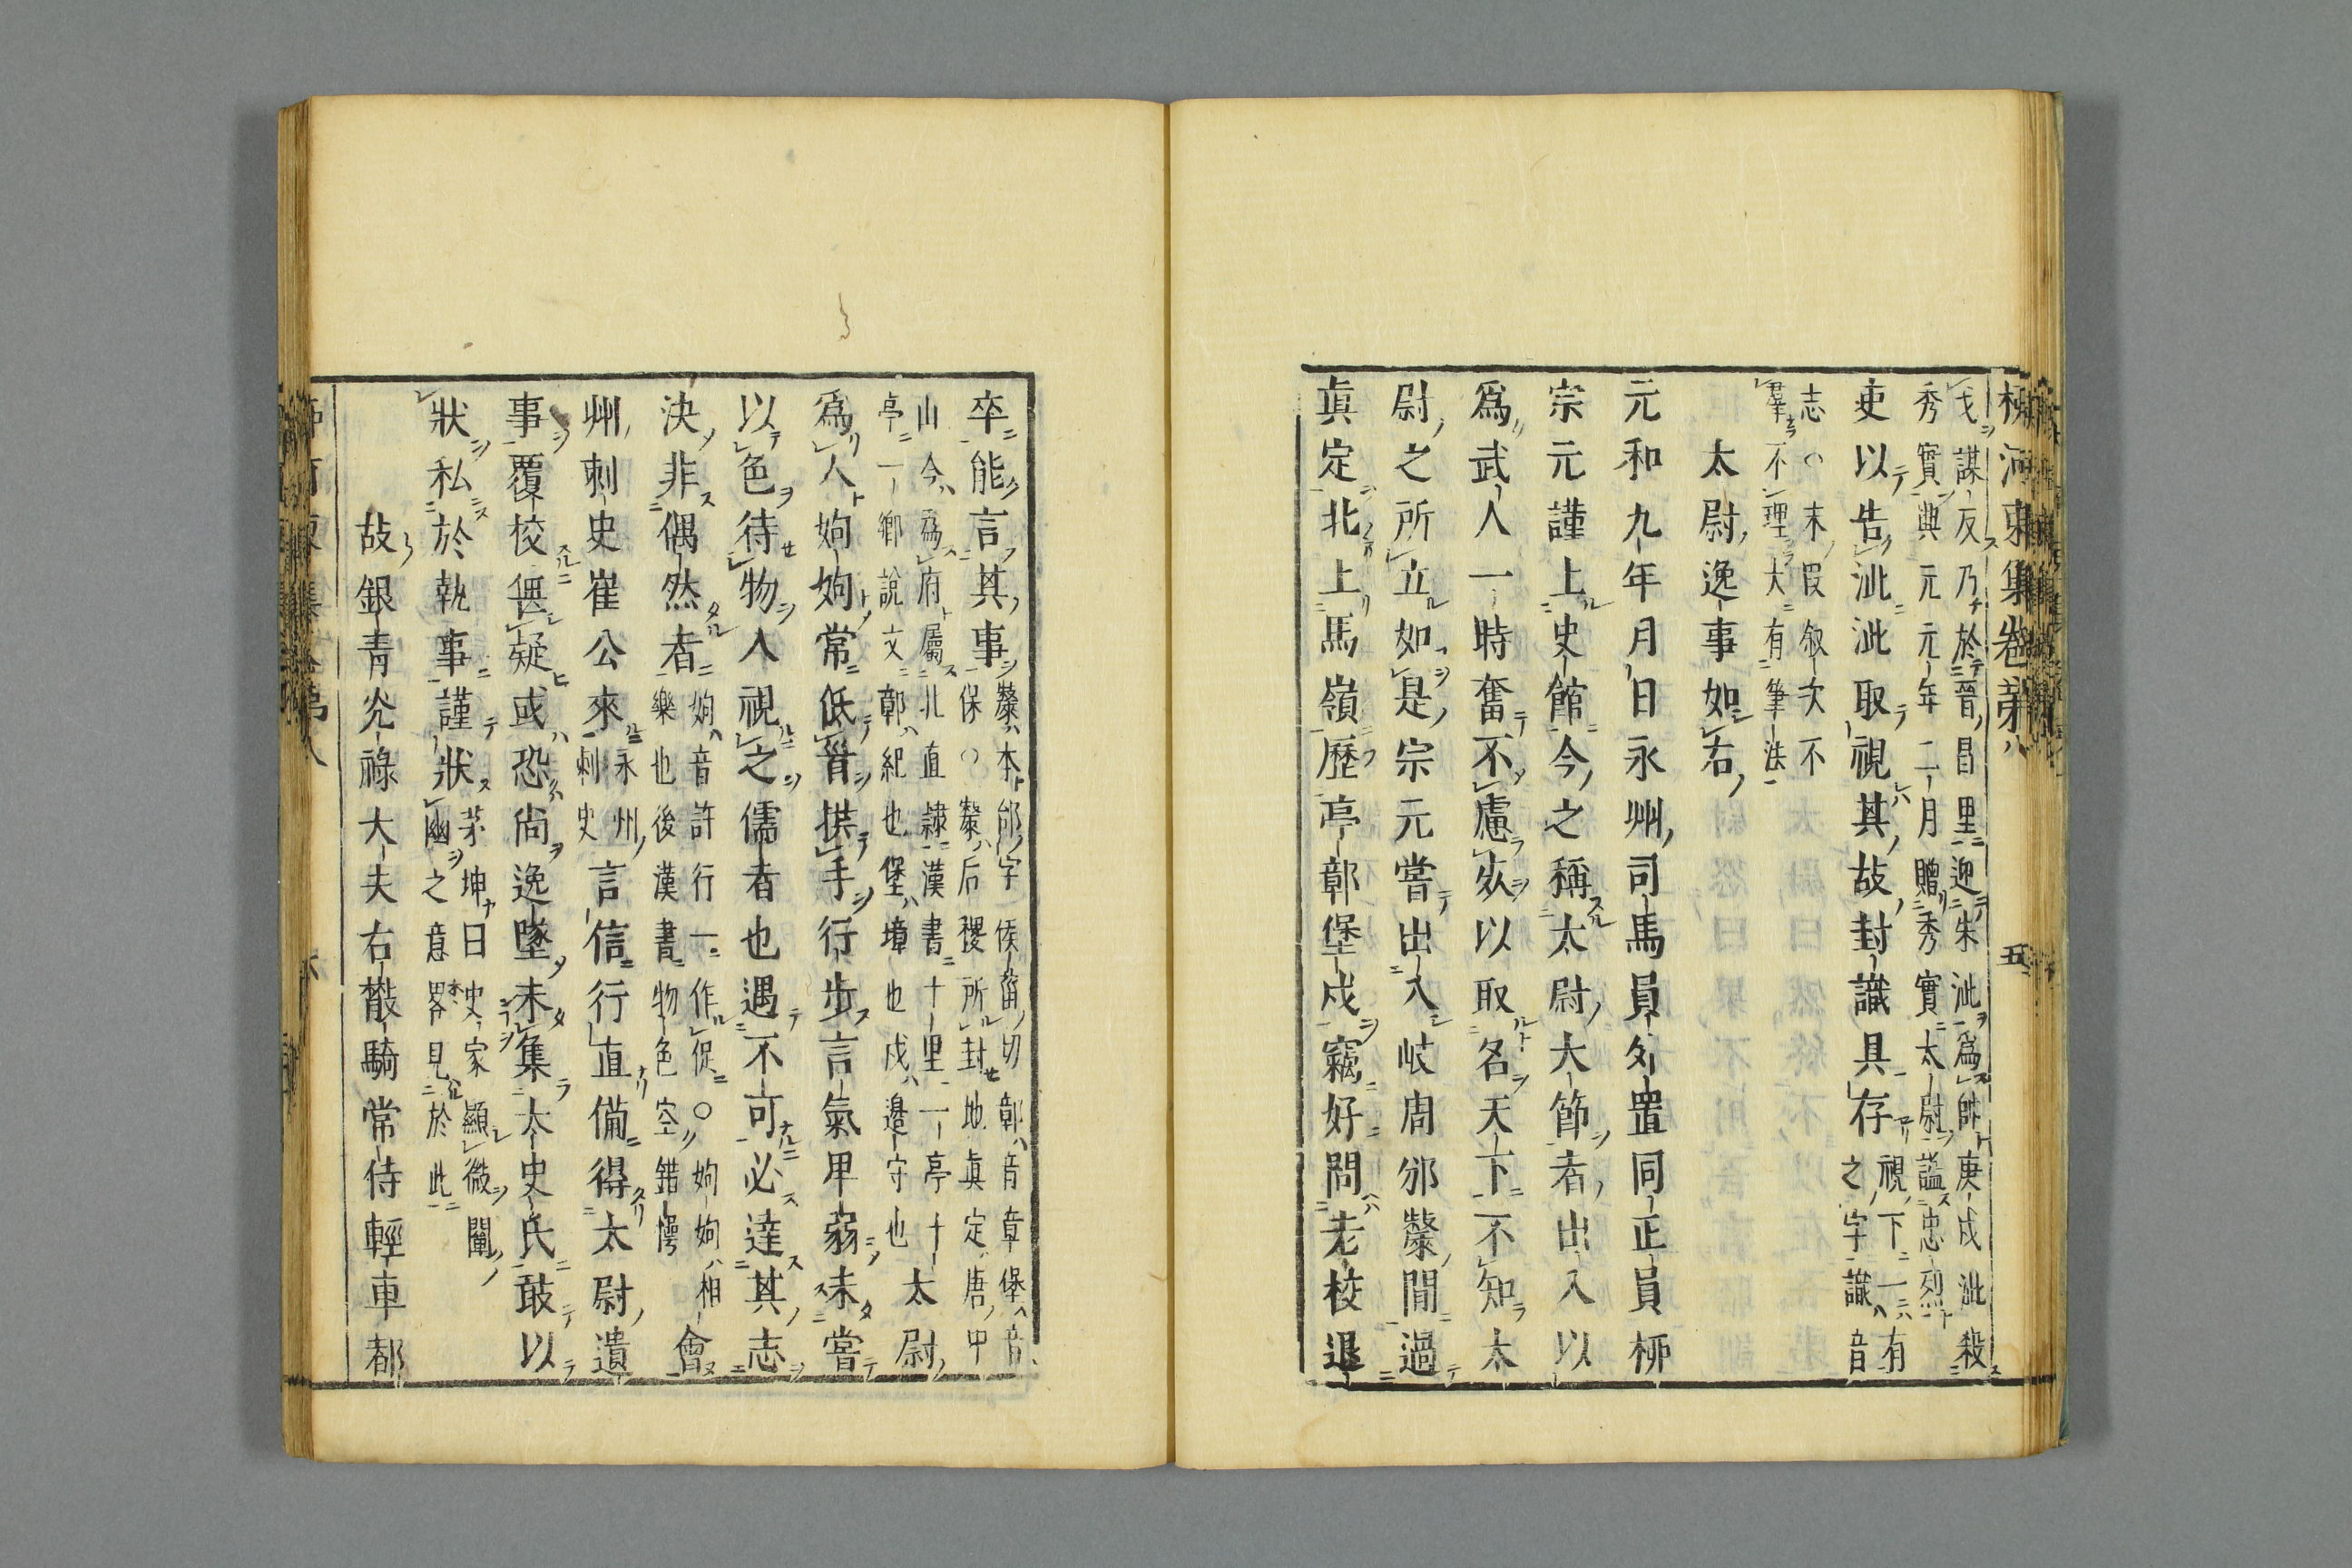 柳河東集卷第八
五
戈謀反乃於晉昌里迎朱泚爲帥庚戌泚殺
秀實興元元年二月贈秀實太尉謚忠烈
吏以告泚泚取視其故封識具存
視下一有
之字識音
志○末叚叙次不
羣不理大有筆法
太尉逸事如右
元和九年月日永州司馬員外置同正員柳
宗元謹上史館今之稱太尉大節者出入以
爲武人一時奮不慮死以取名天下不知太
尉之所立如是宗元嘗出入岐周邠斄間過
眞定北上馬嶺歷亭鄣堡戍竊好問老校退
卒能言其事
斄本邰字侯甾切鄣音章堡音
保○斄后稷所封地眞定唐中
山今爲府屬北直隸漢書十里一亭十
亭一鄉說文鄣紀也堡墇也戍邊守也
太尉
爲人姁姁常低首拱手行步言氣卑弱未嘗
以色待物人視之儒者也遇不可必達其志
決非偶然者
姁音許行一作促○姁姁相
樂也後漢書物色空錯愕
會
州刺史崔公來
永州
刺史
言信行直備得太尉遺
事覆校無疑或恐尚逸墜未集太史氏敢以
狀私於執事謹狀
茅坤曰史家顯微闡
幽之意畧見於此
故銀青光祿大夫右散騎常侍輕車都